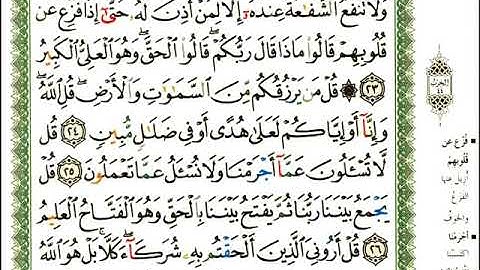 وَلَا تَنفَعُ ٱلشَّفَـٰعَةُ عِندَهُۥٓ إِلَّا لِمَنْ أَذِنَ لَهُۥ ۚ حَتَّىٰٓ إِذَا فُزِّعَ عَن
قُلُوبِهِمْ قَالُوا۟ مَاذَا قَالَ رَبُّكُمْ ۖ قَالُوا۟ ٱلْحَقَّ ۖ وَهُوَ ٱلْعَلِىُّ ٱلْكَبِيرُ
٢٣ ۞ قُلْ مَن يَرْزُقُكُم مِّنَ ٱلسَّمَـٰوَٰتِ وَٱلْأَرْضِ ۖ قُلِ ٱللَّهُ ۖ
وَإِنَّآ أَوْ إِيَّاكُمْ لَعَلَىٰ هُدًى أَوْ فِى ضَلَـٰلٍ مُّبِينٍ ٢٤ قُل
لَّا تُسْـَٔلُونَ عَمَّآ أَجْرَمْنَا وَلَا نُسْـَٔلُ عَمَّا تَعْمَلُونَ ٢٥ قُلْ
يَجْمَعُ بَيْنَنَا رَبُّنَا ثُمَّ يَفْتَحُ بَيْنَنَا بِٱلْحَقِّ وَهُوَ ٱلْفَتَّاحُ ٱلْعَلِيمُ
٢٦ قُلْ أَرُونِىَ ٱلَّذِينَ أَلْحَقْتُم بِهِۦ شُرَكَآءَ ۖ كَلَّا ۚ بَلْ هُوَ ٱللَّهُ
الحزب
٤٤
فُزِّعَ عن
قلوبهم
أزيل عنها
الفزع
والخوف
أجرمنا
اكتسبنا